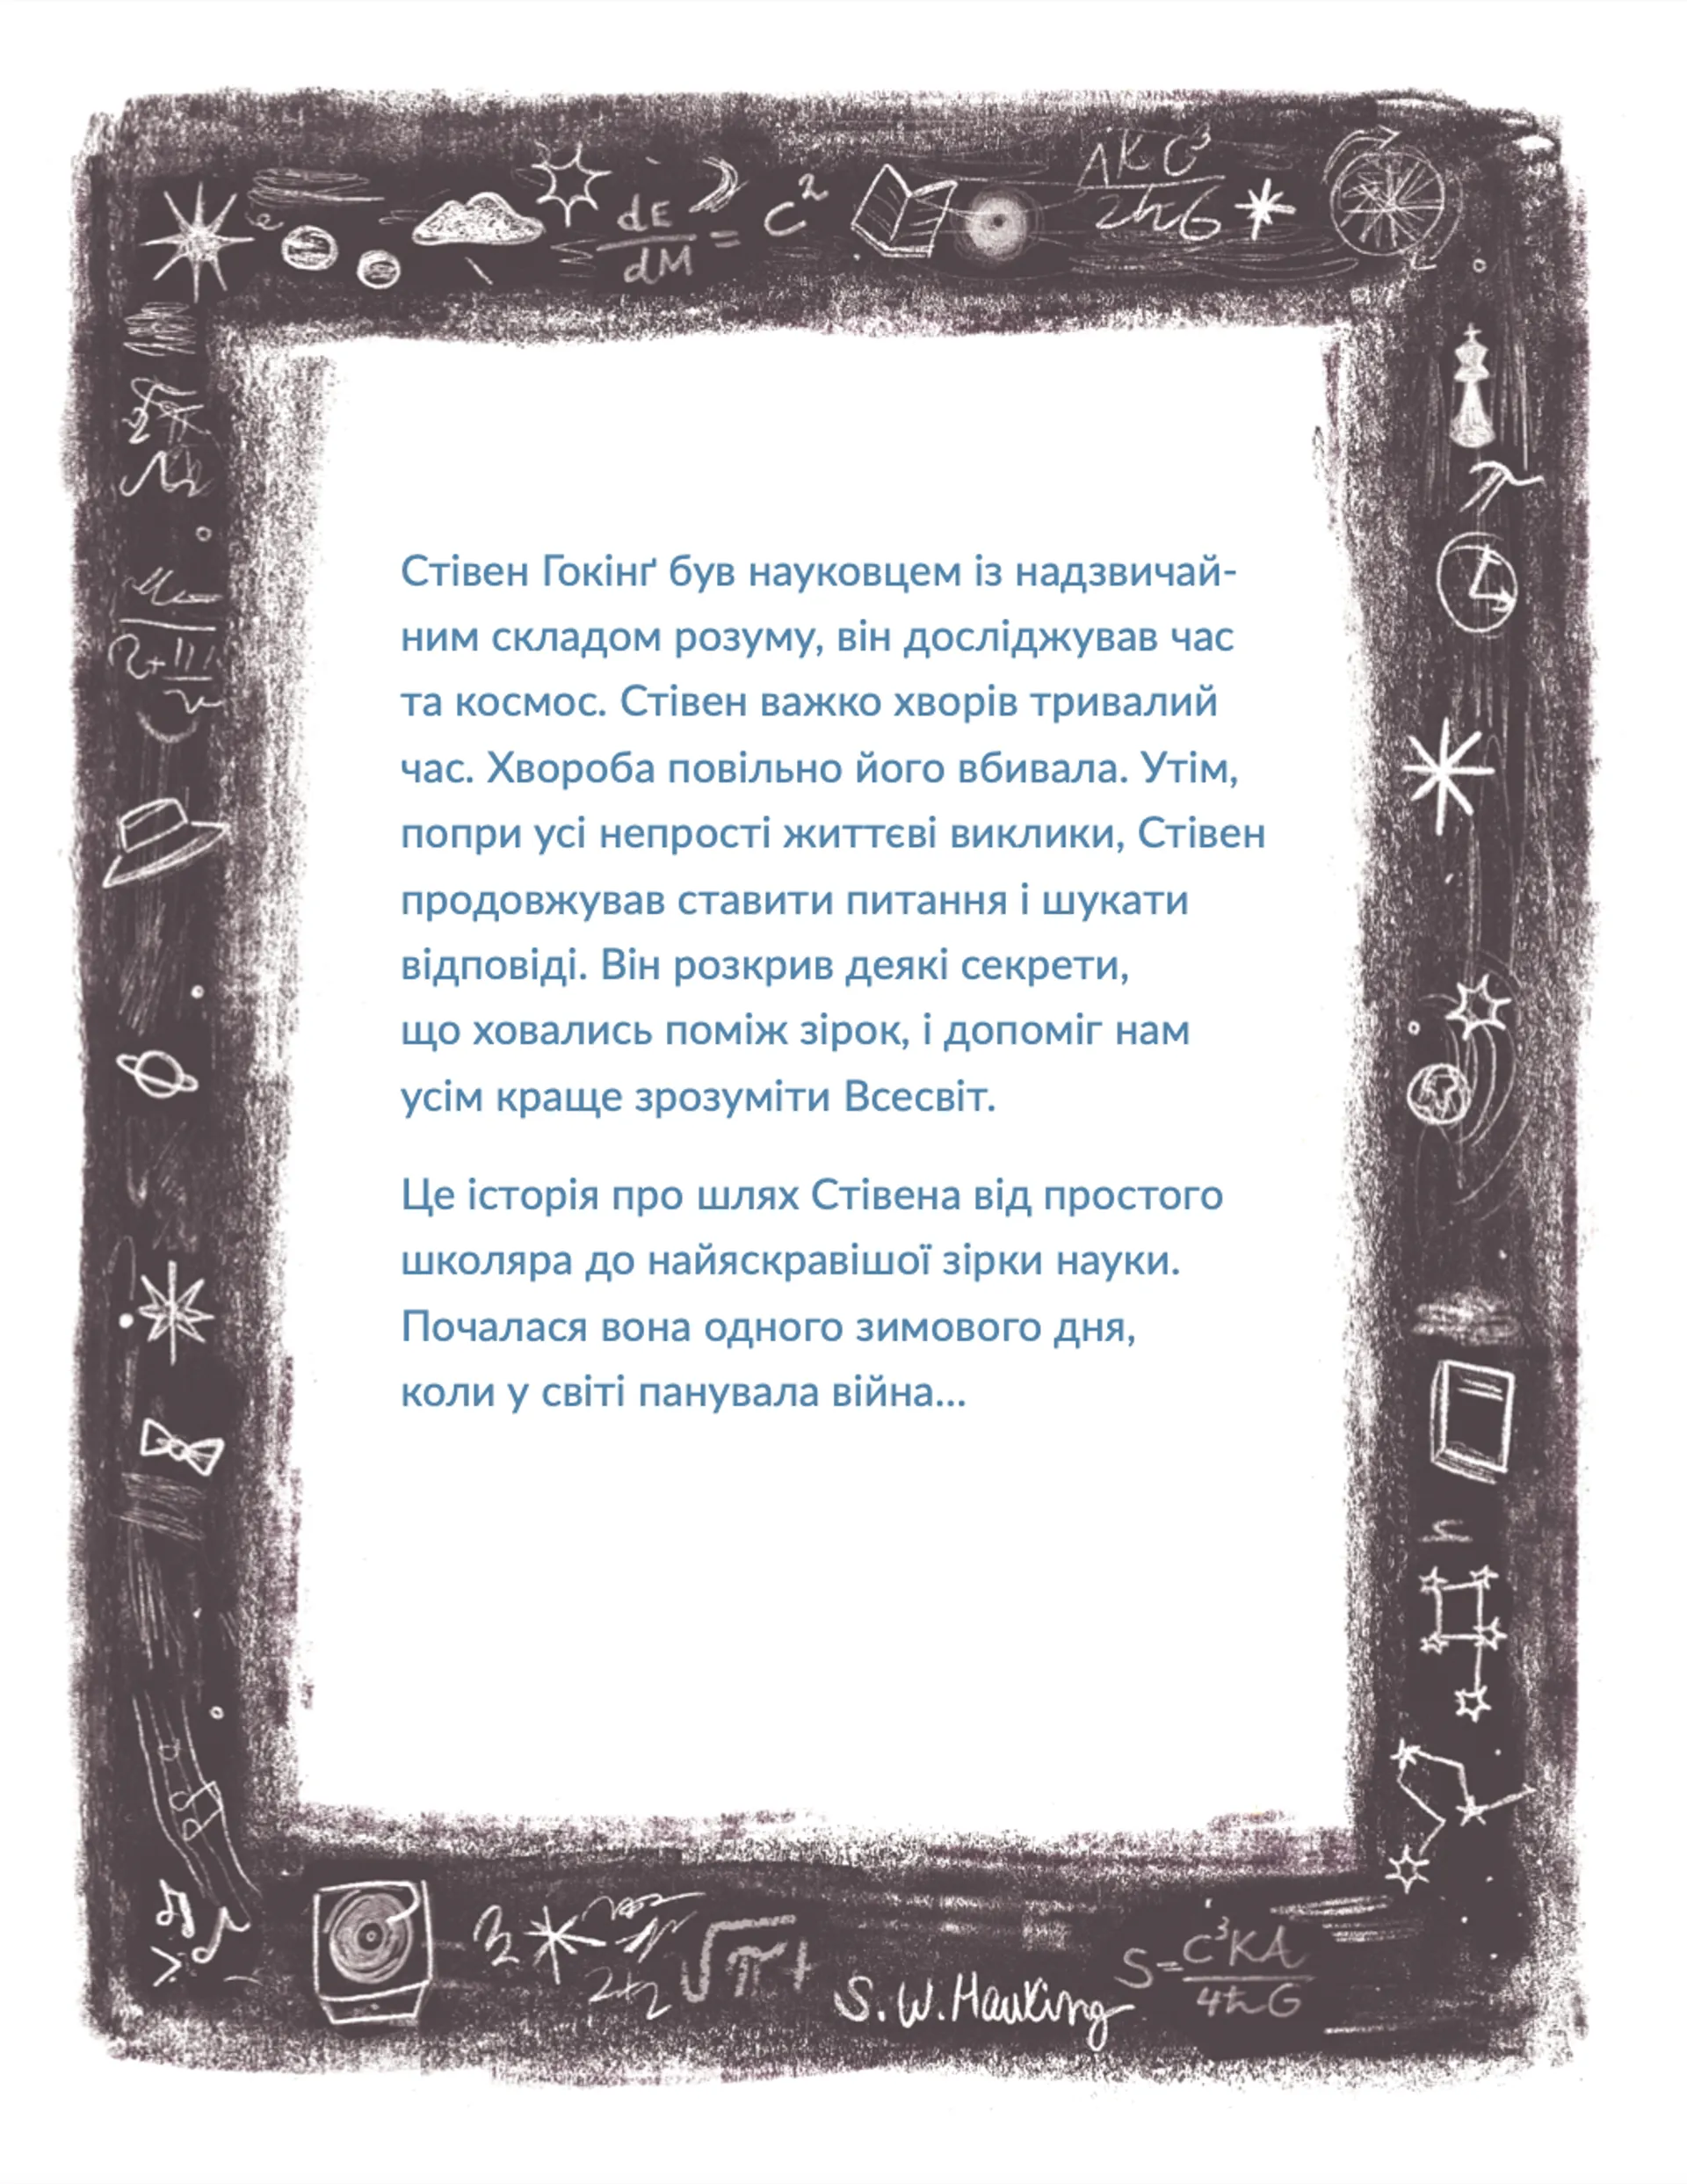 dE
dM = C²
AKC³
2ħG
Стівен Гокінґ був науковцем із надзвичай-
ним складом розуму, він досліджував час
та космос. Стівен важко хворів тривалий
час. Хвороба повільно його вбивала. Утім,
попри усі непрості життєві виклики, Стівен
продовжував ставити питання і шукати
відповіді. Він розкрив деякі секрети,
що ховались поміж зірок, і допоміг нам
усім краще зрозуміти Всесвіт.
Це історія про шлях Стівена від простого
школяра до найяскравішої зірки науки.
Почалася вона одного зимового дня,
коли у світі панувала війна...
√π+
S.W.Hawking
S=C³KA
4ħG